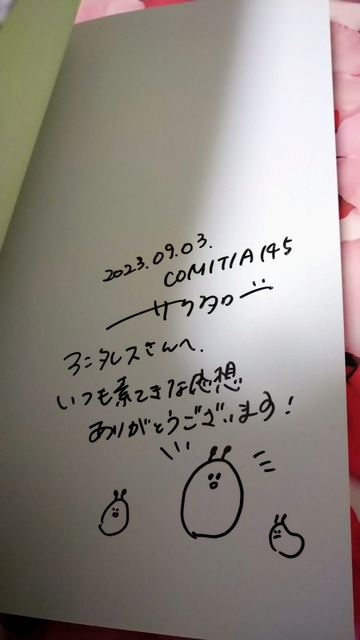 2023.09.03.
COMITIA145
サクタロー
さんへ.
いつも素てきな感想
ありがとうございます!